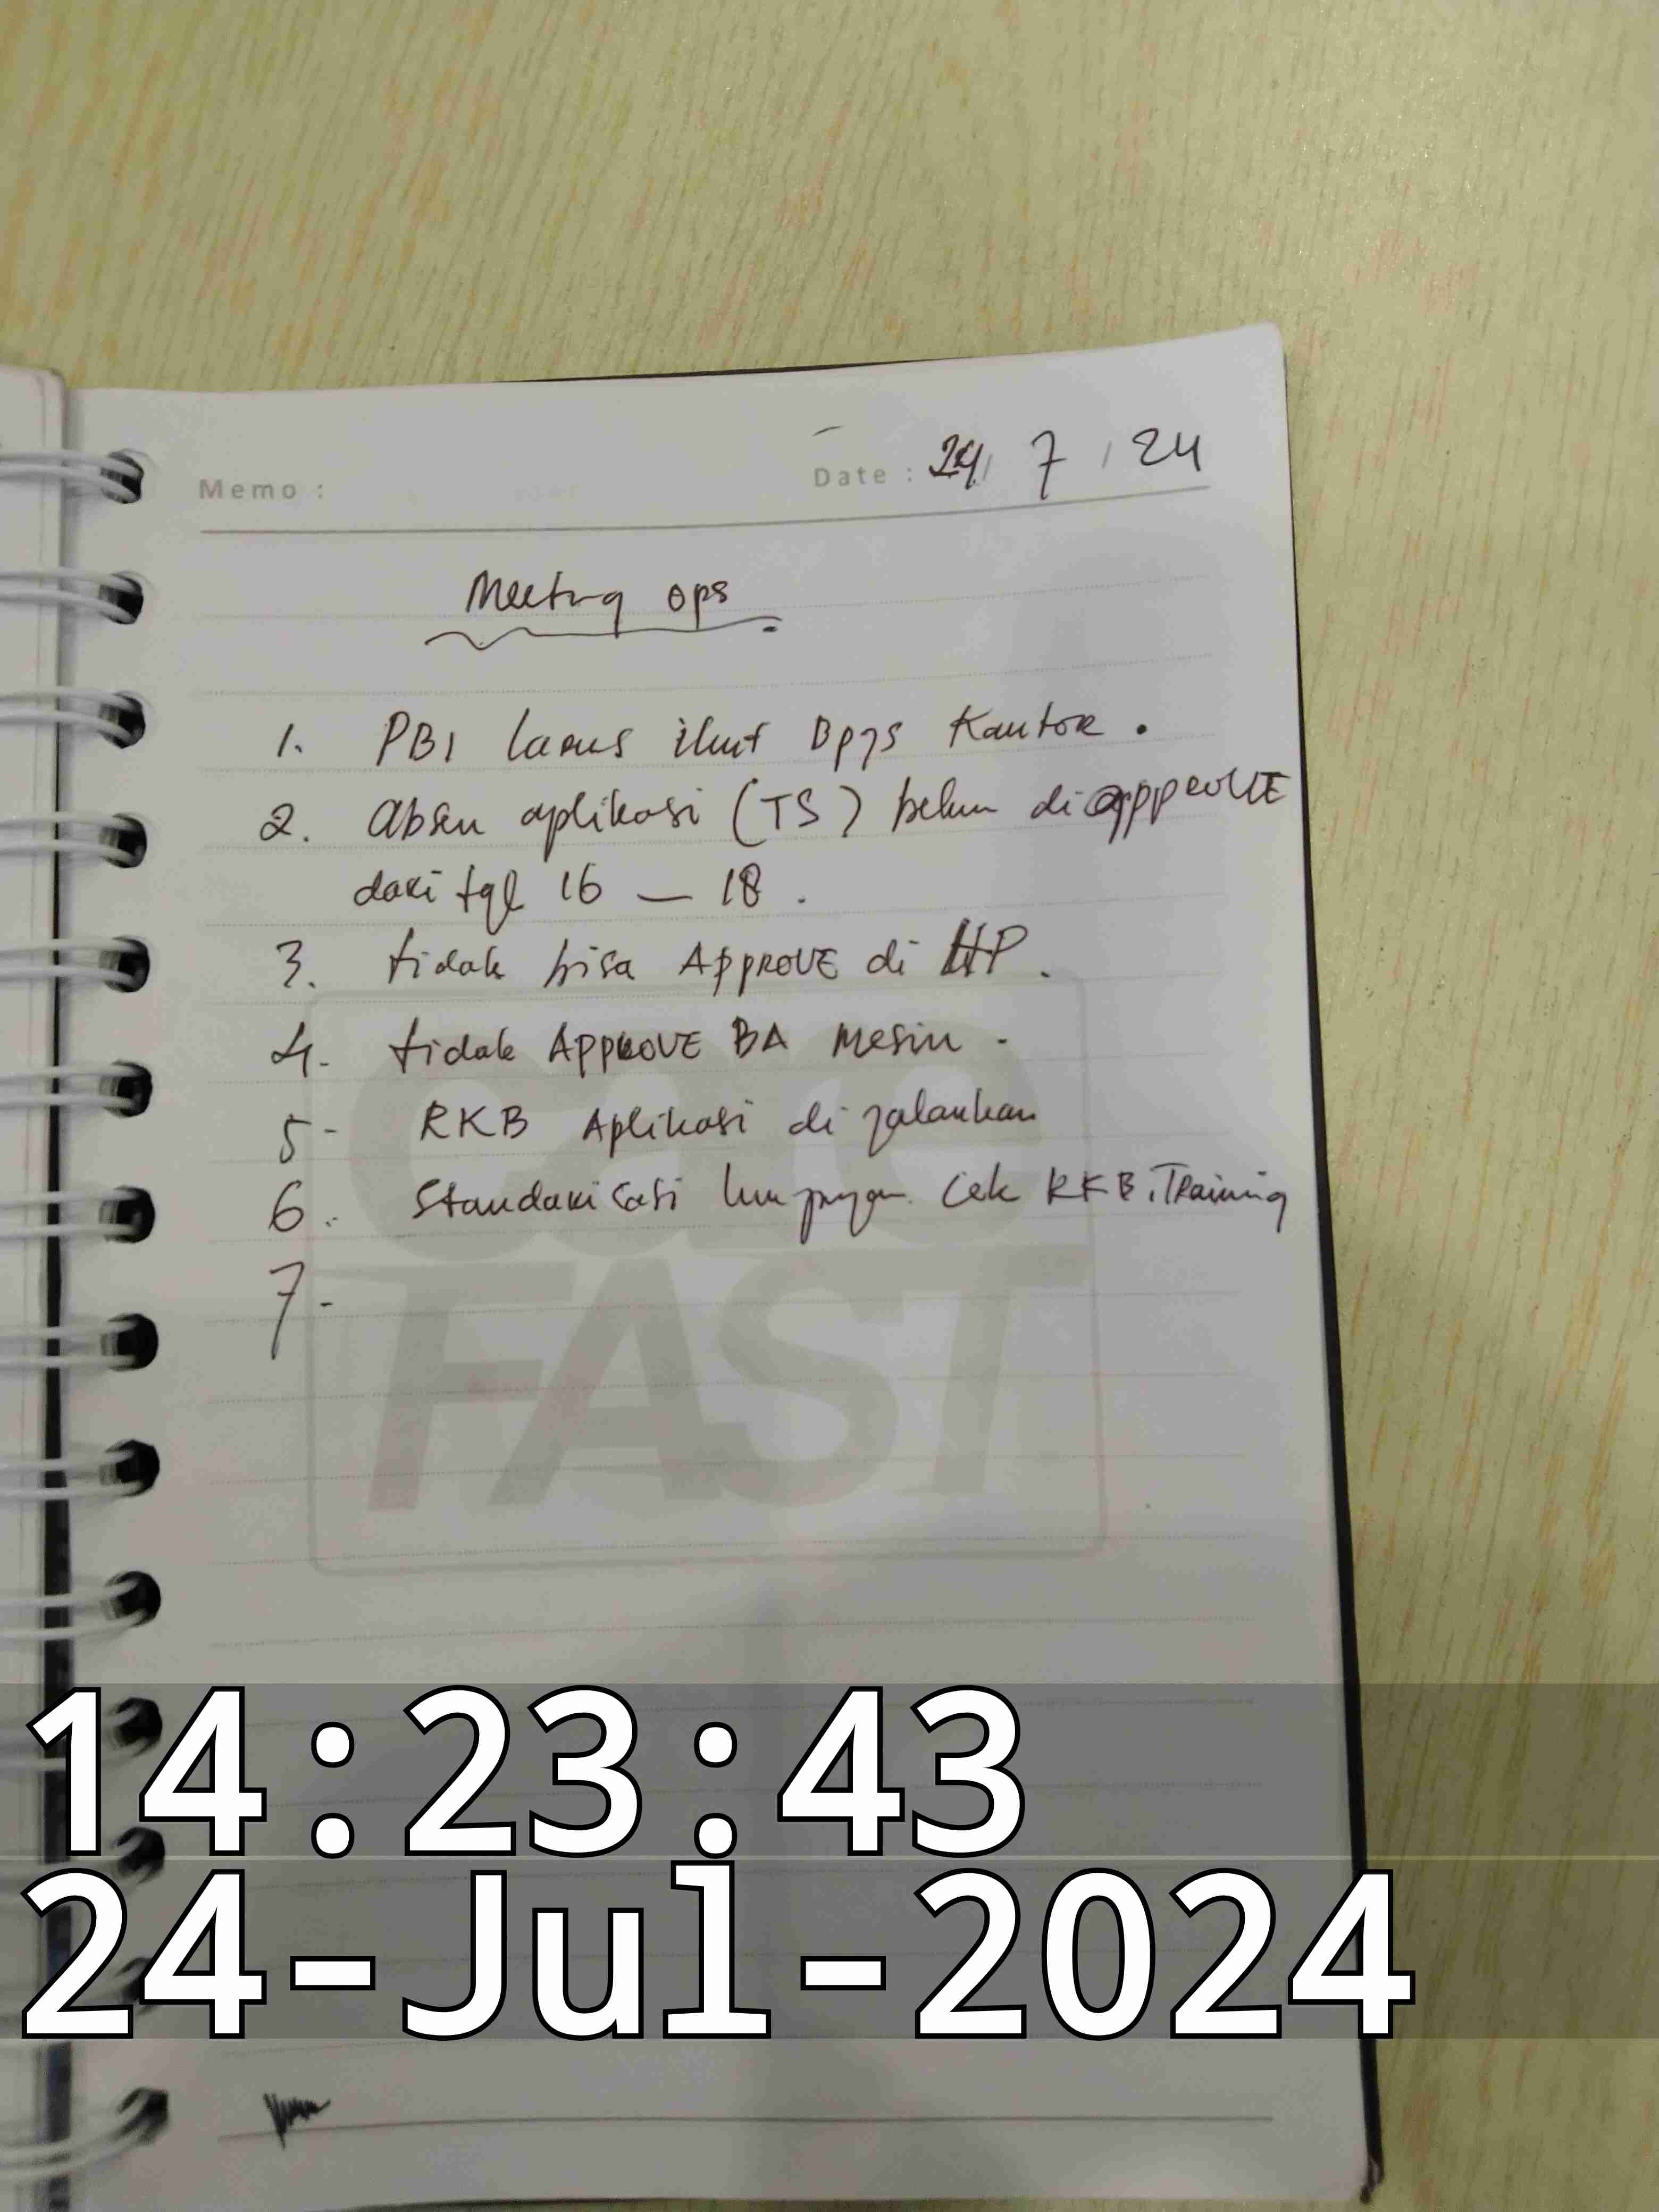 Memo :
Date : 24 / 7 / 24
Meeting ops
1. PBI harus ikut Bpjs Kantor .
2. Absen aplikasi (TS) belum di approVE
dari tgl 16 — 18 .
3. tidak bisa APPROVE di HP .
4. tidak APPROVE BA Mesin .
5 - RKB Aplikasi di jalankan
6 . Standarisasi Cek RKB . Training
7 -
care
FAST
14:23:43
24-Jul-2024